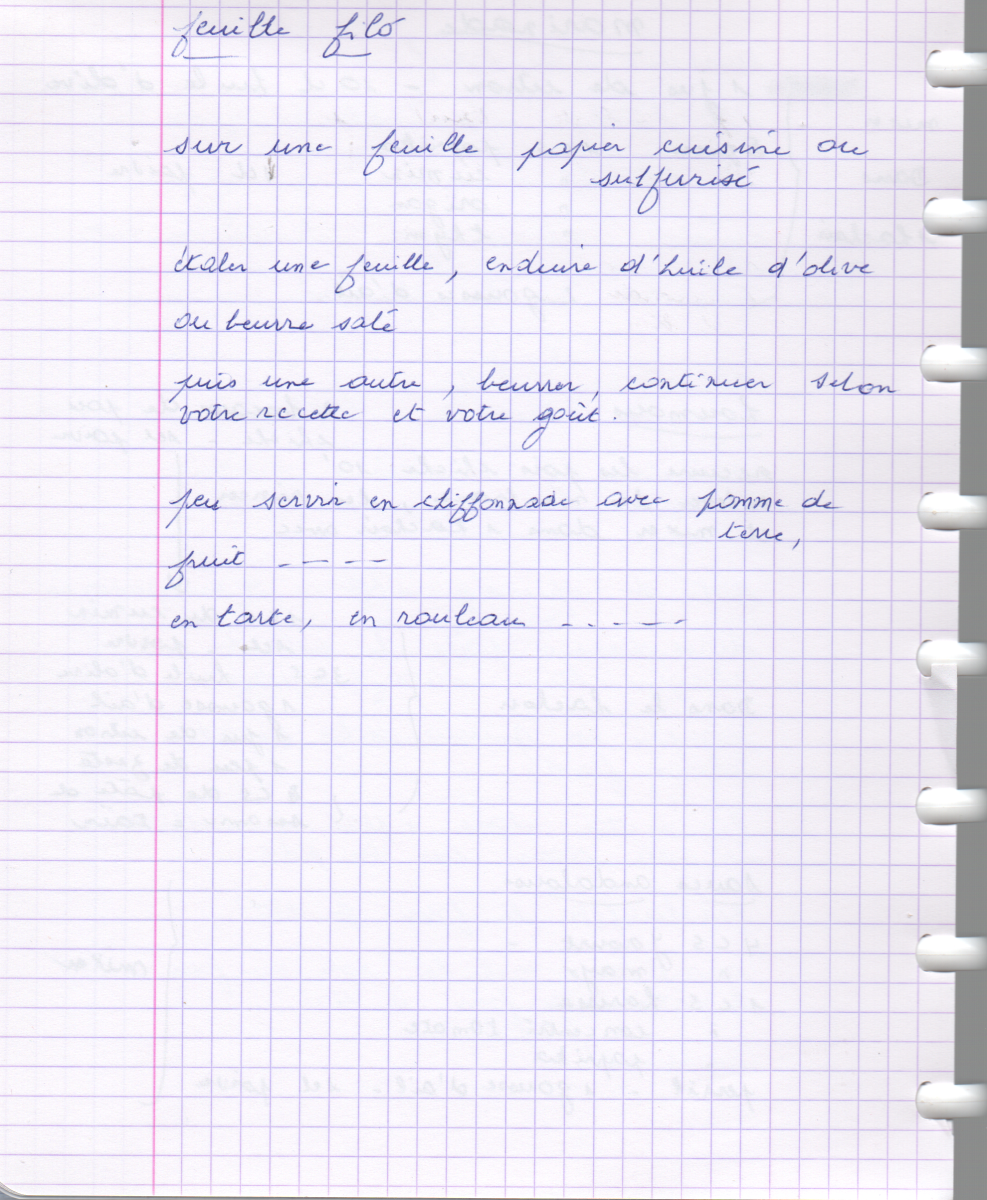 feuille filo
sur une feuille papier cuisine ou
sulfurisé
étaler une feuille, enduire d'huile d'olive
ou beurre salé
puis une autre, beurrer, continuer selon
votre recette et votre goût.
peu servir en chiffonnade avec pomme de
terre,
fruit - - - -
en tarte, en rouleau - - - - -